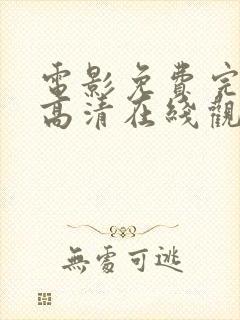 電影免費完
高清在綫觀
無處可逃